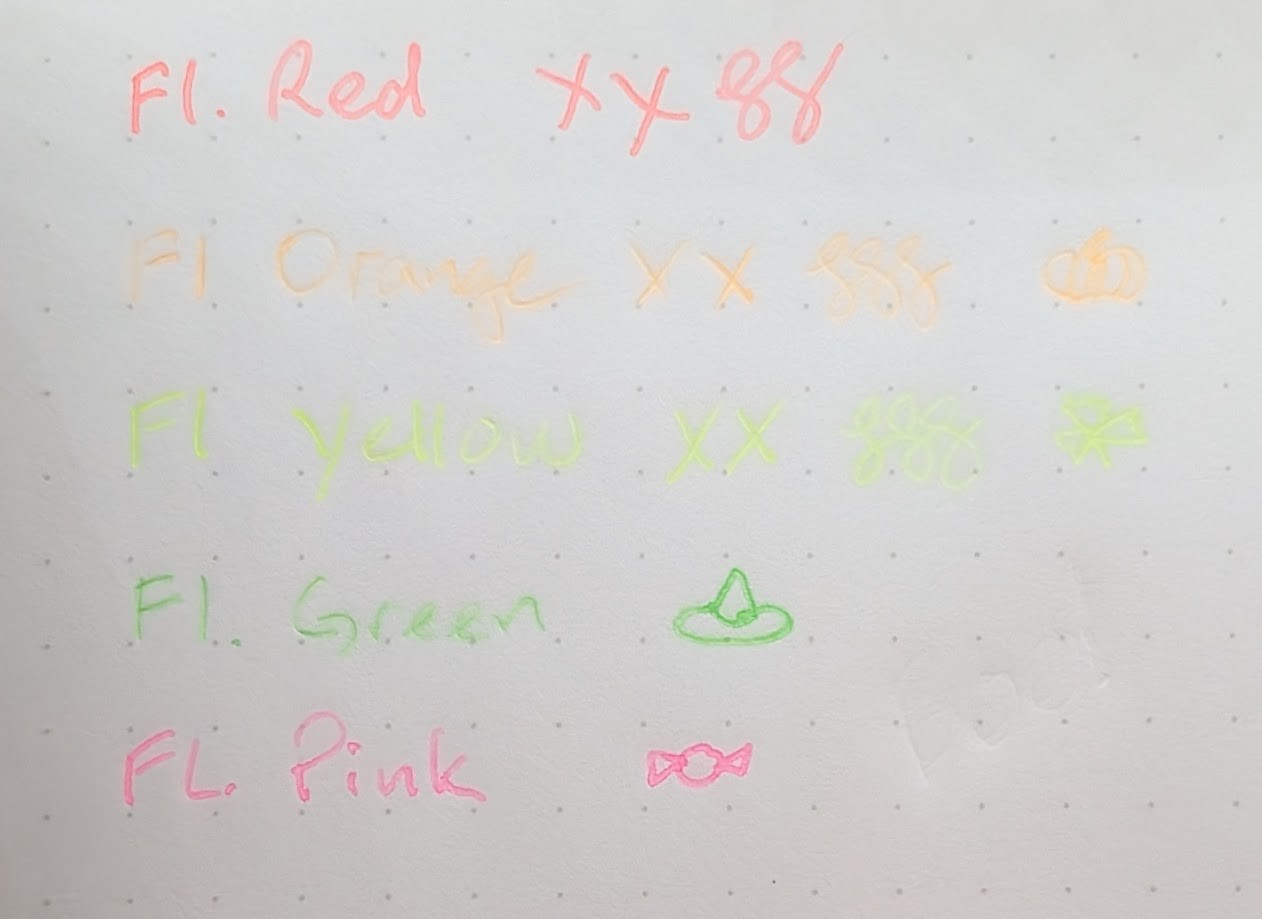 Fl. Red XX ggg
Fl Orange XX gggg
Fl Yellow XX gggg
Fl. Green
FL. Pink
Boo!